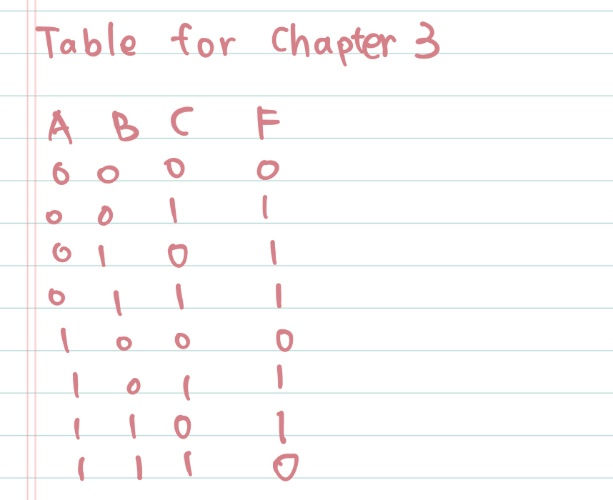 Table for Chapter 3
A B C F
0 0 0 0
0 0 1 1
0 1 0 1
0 1 1 1
1 0 0 0
1 0 1 1
1 1 0 1
1 1 1 0